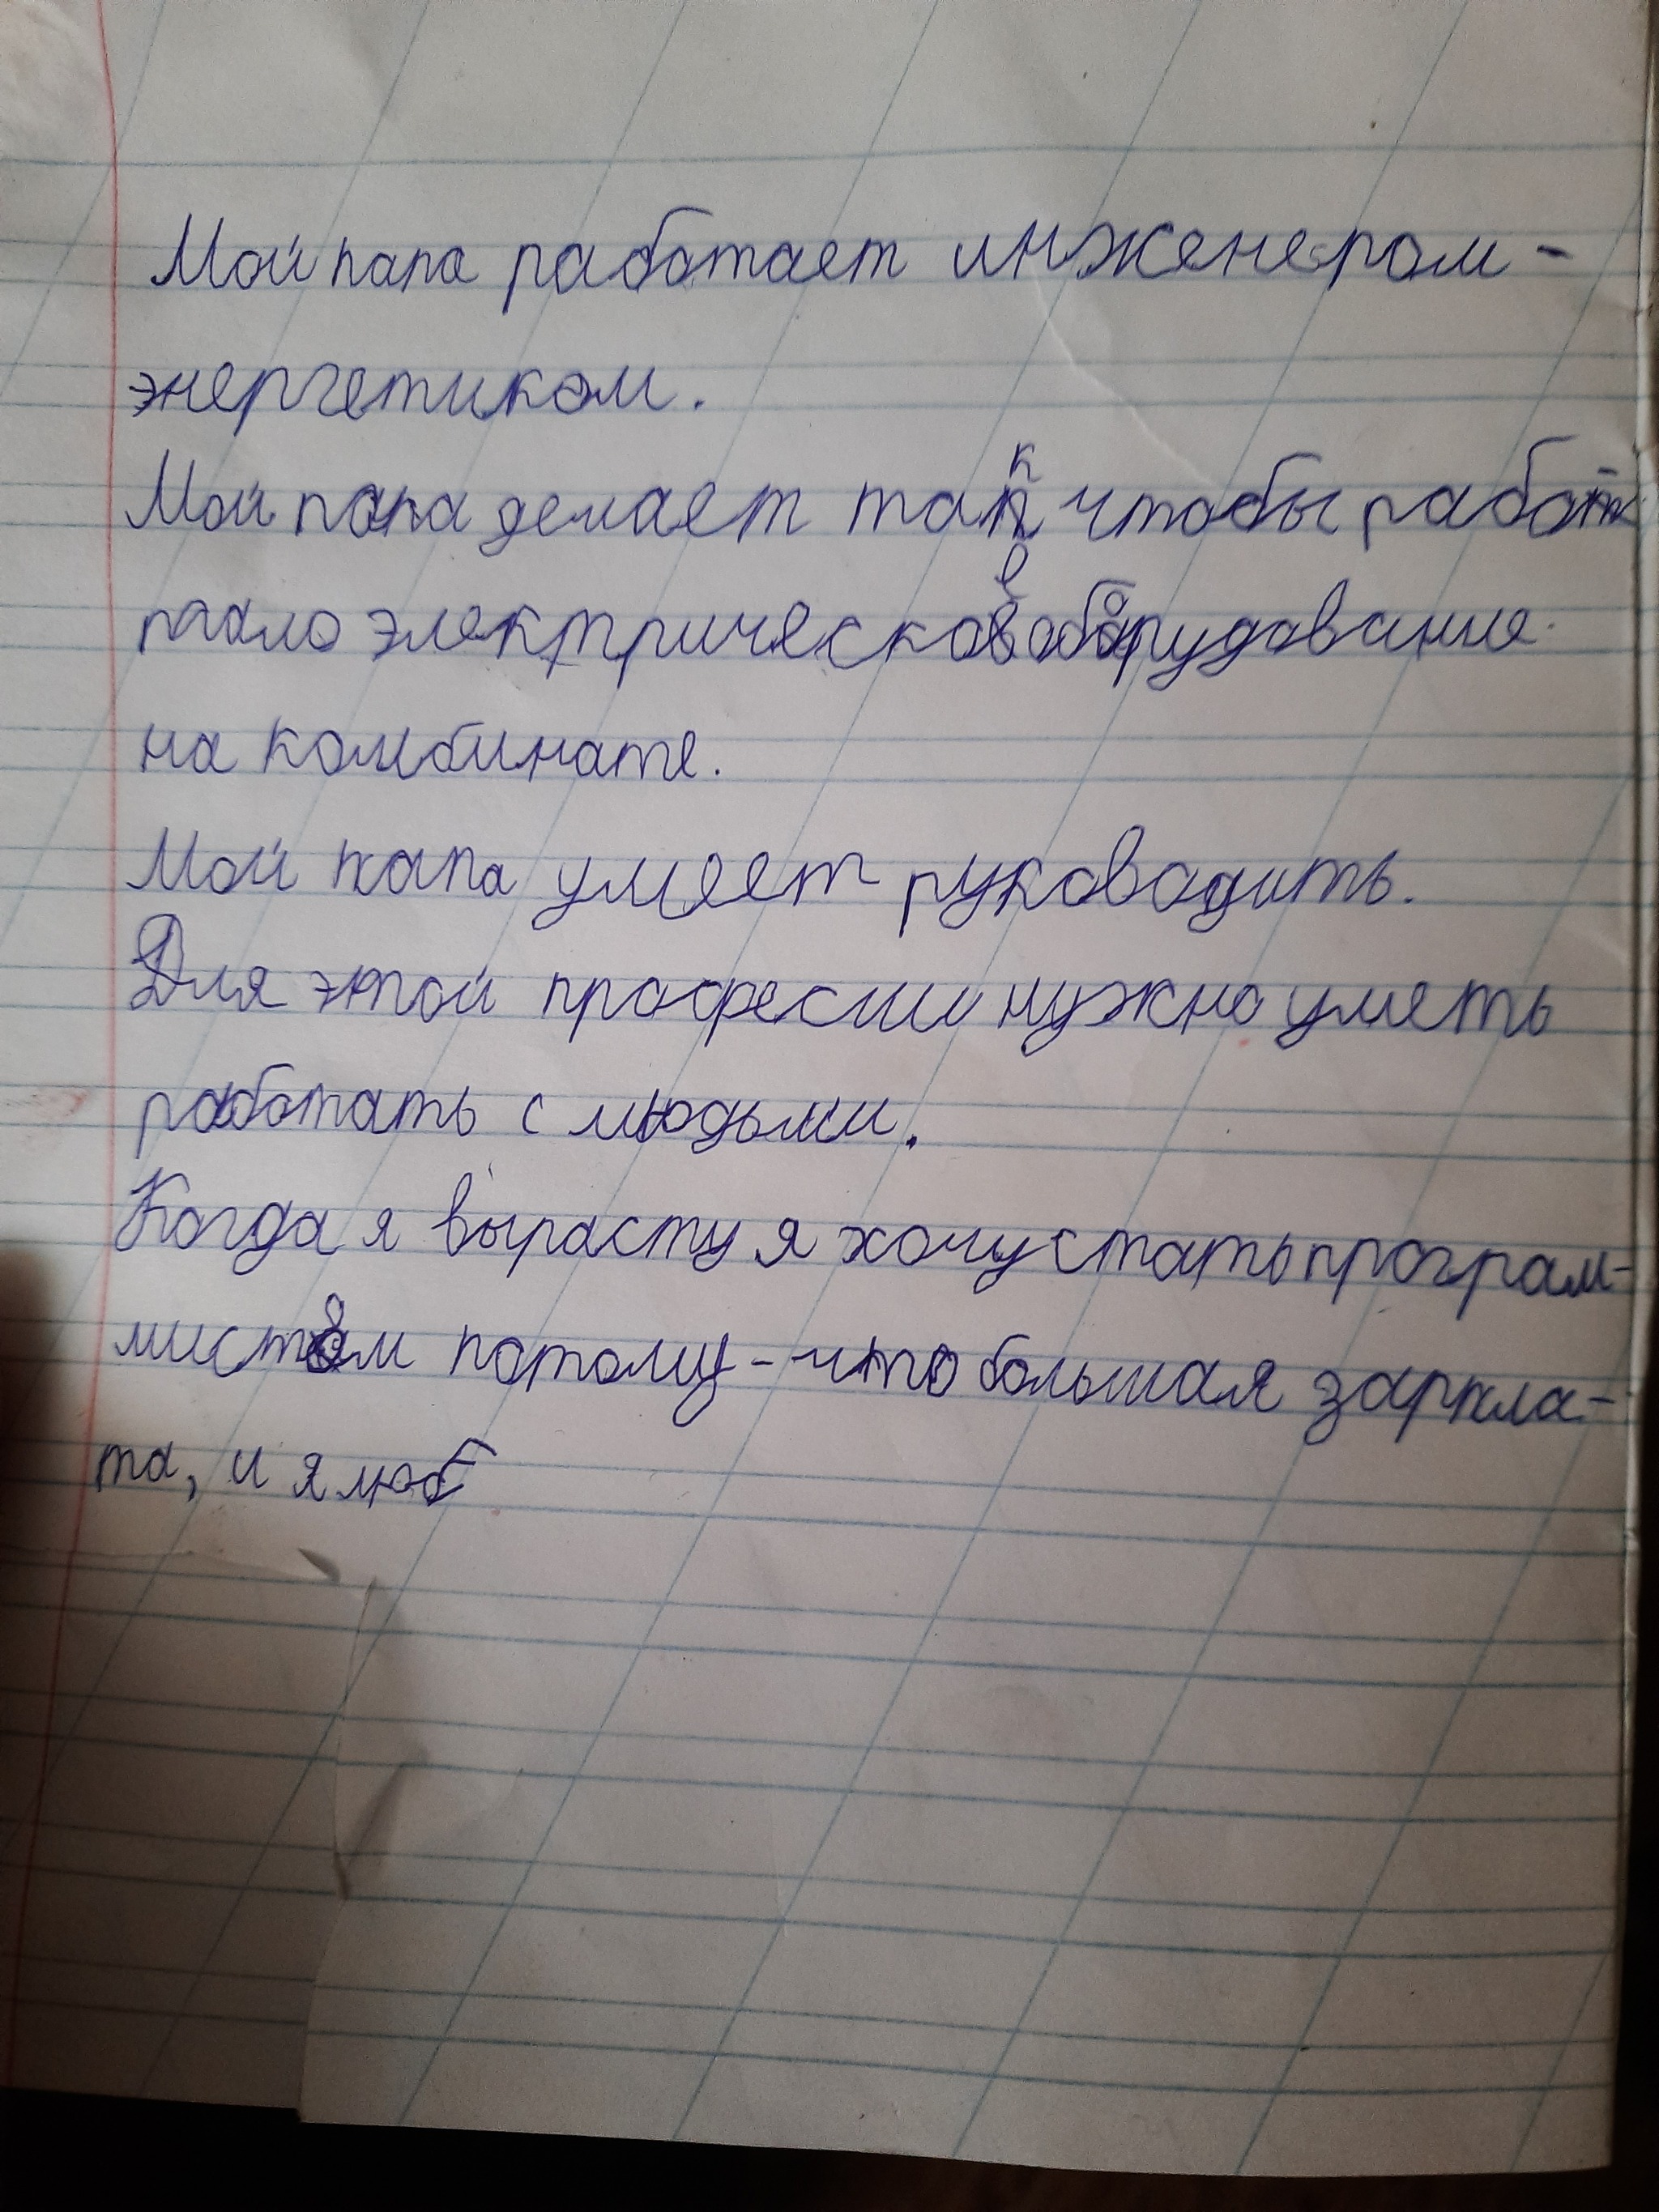 Мой папа работает инженером-
энергетиком.
Мой папа делает так чтобы работ-
тало электрическое оборудование
на комбинате.
Мой папа умеет руководить.
Для этой професии нужно уметь
работать с людьми.
Когда я вырасту я хочу стать програм-
мистом потому-что большая зарпла-
та, и я люб